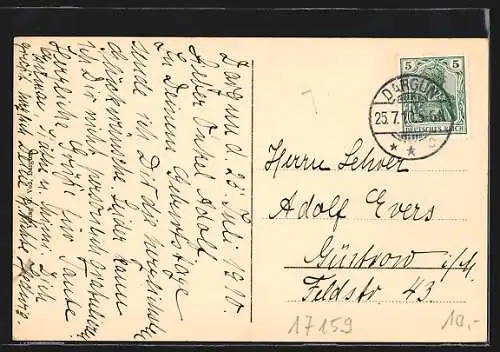 Dargun d. 25. Juli 1910.
Lieber Onkel Adolf!
Zu Deinem Geburtstage
sende ich Dir die herzlichsten
Glückwünsche. Leider kann
ich Dir nicht persönlich
Herzliche Grüße für Tante
und Mimi. Dich
grüßt Deine Nichte
DARGUN
25.7.10
5
5
DEUTSCHES REICH
Herrn Lehrer
Adolf Evers
Güstrow i/M.
Feldstr. 43
17159
10.-